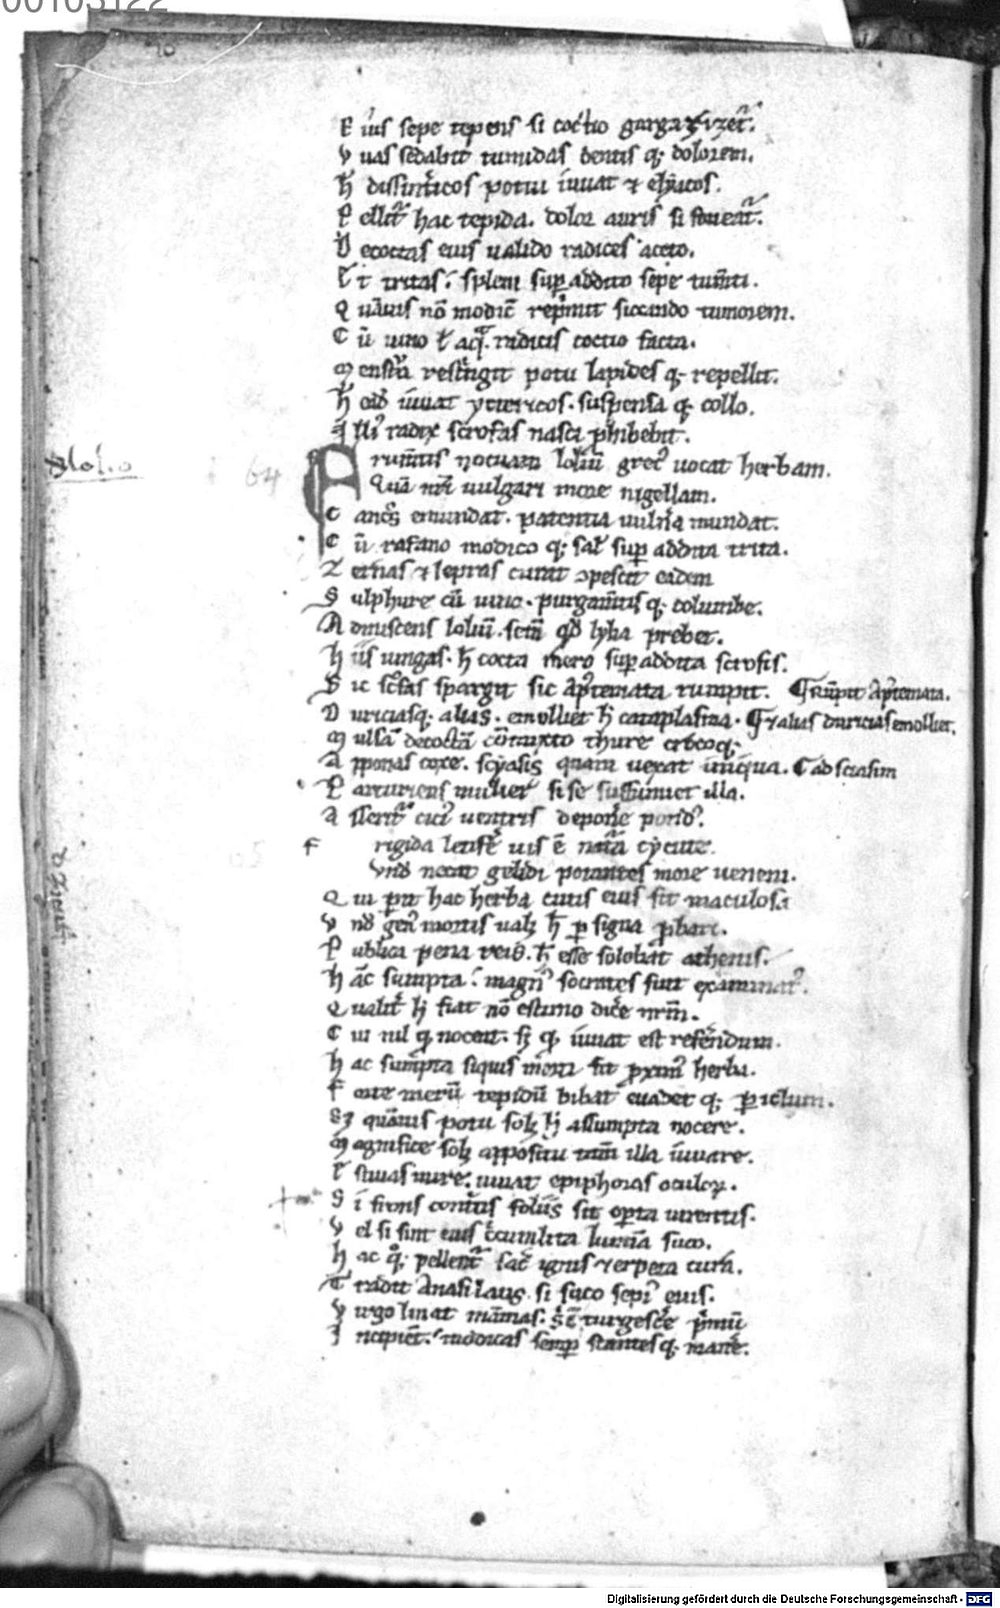 00103122
E ius sepe tepens si coctio gargarizet᷑.
V uas sedabit tumidas dentis q; dolorem.
H dissint̾icos potu iuuat ⁊ elyacos.
P ellit᷑ hac tepida. dolor auris si foueat᷑.
D ecoctas eius ualido radices aceto.
E t tritas. splem sup addito sepe tum̄ti.
Q uāuis nō modic̄ rep̄mit siccando tumorem.
C ū uino ł aq. radicis coctio facta.
M enst̾a rest̾ingit potu lapides q; repellit.
H iuuat yctericos. suspensa q; collo.
radix scrofas nasci phibebit.
Slolio
64
A rum̄tis nocuam loliū grec᷒ uocat herbam.
Quā nr̄i uulgari more nigellam.
C anc̾s emundat. patentia uuln̾a mundat.
C ū rafano modico q; sal̾ sup addita trita.
Z ernas ⁊ lepras curat ɔpescit eadem
S ulphure cū uino. purgam̄tis q; columbe.
A dmiscens loliū. sem̄ qd̾ lyha prebet.
H iis ungas. h̄ cocta mero sup addita scrofis.
S ic sc̾fas spargit sic ap̄temata rumpit. ¶ Rūpit Ap̄temata.
D uriciasq; alias. emolliet h̄ cataplasma. ¶ ⁊ alias duricias emolliet.
M ulsā decoctā cōmixto thure crocoq;
A pponas coxe. scyasis quam uexat iniqua. ¶ ad sciasim
P arturiens mulier si se suffumiet illa.
A sserit᷑ cici᷒ uentris depon̾e pond᷒.
65
F rigida letifẽ uis ē natā cycute.
Vnd̾ necat gelidi potantes more ueneni.
Q ui pit hac herba cutis eius fit maculosa
V nd̾ gen᷒ mortis ualꝫ h̄ p signa phari.
P ublica pena reis. h̄ esse solebat athenis.
H āc sumpta. magn᷒ socrates fuit exanimat᷒.
Q ualit̾ h̄ fiat nō estimo dic̾e nr̄m.
C ui nil q̾ noceat. sꝫ q̾ iuuat est referendum.
H ac sumpta siquis fit pxim᷒ herba.
F orte merū tepidū bibat euadet q; piclum.
Sꝫ quāuis potu solꝫ h̄ assumpta nocere.
M agnifice solꝫ appositu tam̄ illa iuuare.
E stiuas mire. iuuat epiphoras oculoꝝ.
S i frons contritis foliis sit op̾ta uirentis.
V el si sint eius c̾cumlita lumīa suco.
H ac q̊; pellent᷑ sac̾ ignis ⁊ erpeta cura.
T radit Anasilaus si suco sepi᷒ eius.
V irgo linat māmas. turgesc̾e p̄mū
I ncipiēt. modicas semp stantes q; man̾e.
Digitalisierung gefördert durch die Deutsche Forschungsgemeinschaft - DFG